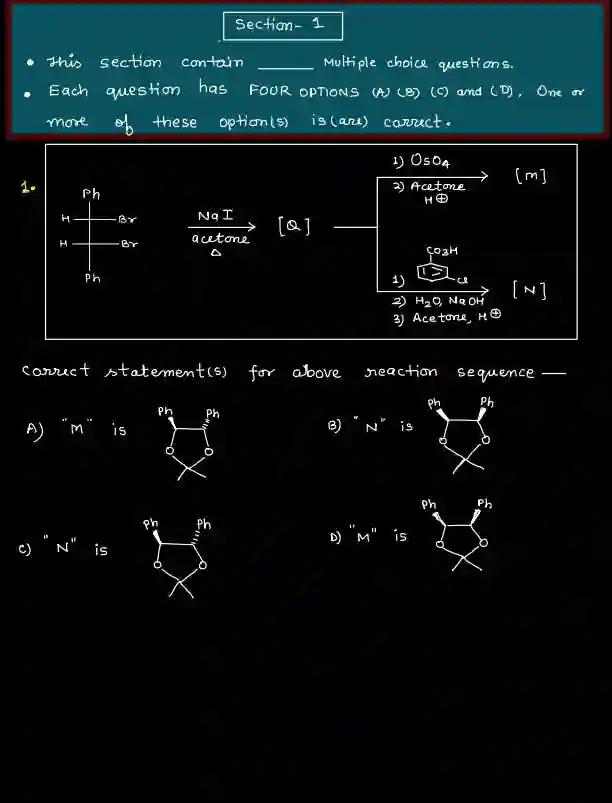 Section- 1
• This section contain ______ Multiple choice questions.
• Each question has FOUR OPTIONS (A) (B) (C) and (D). One or
more of these option(s) is (are) correct.
1.
Ph
H Br
H Br
Ph
NaI
acetone
Δ
[Q]
1) OsO4
2) Acetone
H⊕
[M]
CO3H
1) Cl
2) H2O, NaOH
3) Acetone, H⊕
[N]
correct statement(s) for above reaction sequence —
A) "M" is
Ph Ph
O O
B) "N" is
Ph Ph
O O
C) "N" is
Ph Ph
O O
D) "M" is
Ph Ph
O O